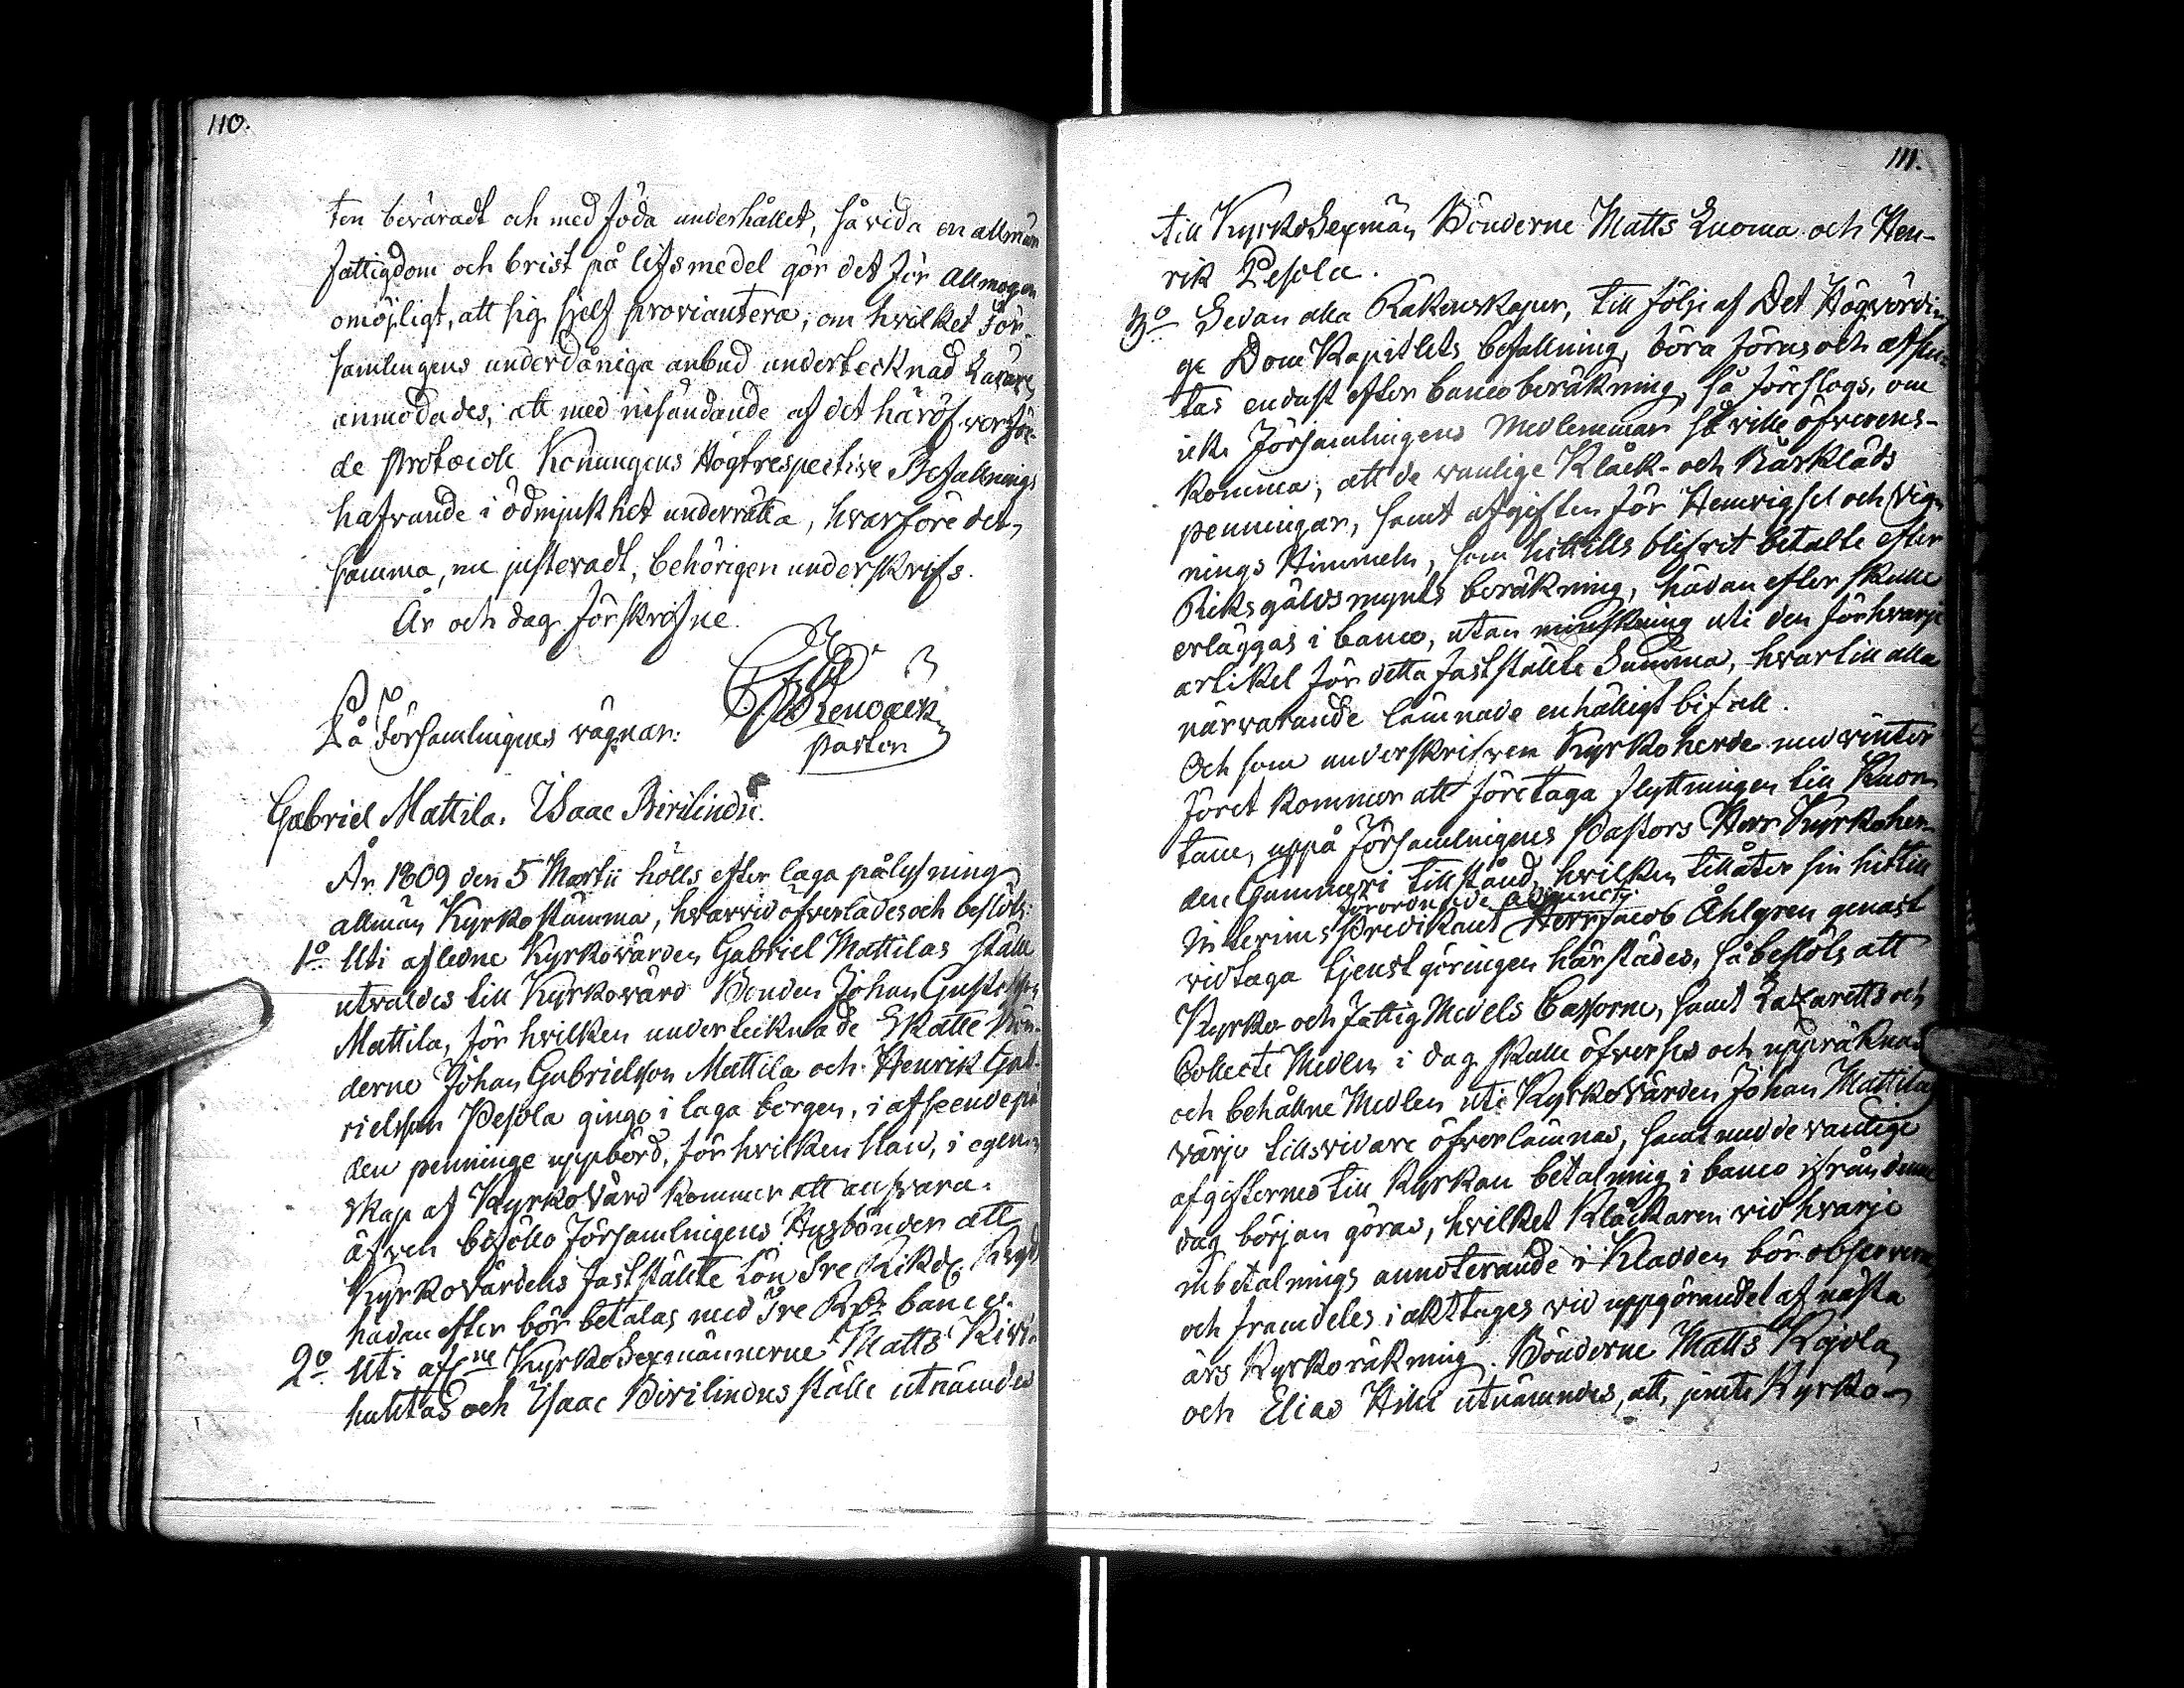 110.
ten beväradt och med föda underhållet, så vida en allmän
fattigdom och brist på lifsmedel gör det för Allmogen
omöjligt, att sig sjelf proviantera, om hvilket För-
samlingens underdåniga anbud undertecknad
anmodades, att med insändande af det häröfver för-
de Protocoll Konungens Högtrespective Befallnings
hafvande i ödmjukhet underrätta, hvarföre det-
samma, nu justeradt, behörigen underskrifs.
År och dag förskrifne.
På Församlingens vägnar:
Pastor
Gabriel Mattila. Isaac Birilindus.
År 1809 den 5 Martii hölls efter laga pålysning
allmän Kyrkostämma, hvarvid öfverlades och beslöts:
1o Uti aflidne Kyrkovärden Gabriel Mattilas ställe
utvaldes till Kyrkovärd Bonden Johan Gustafsson
Mattila, för hvilken undertecknade Skatte Bön-
derne Johan Gabrielsson Mattila och Henrik Gab-
rielsson Pesola gingo i laga borgen, i afseende på
den penninge uppbörd, för hvilken han, i egen-
skap af Kyrkovärd kommer att ansvara.
äfven biföllo Församlingens Husbönder att
Kyrkovärdens fastställte Lön Tre Riksd. Rgds
hädanefter bör betalas med Tre Rd. banco.
2o Uti afne Kyrko Sexmännerne Matts Kivi-
huhtas och Isaac Birilindus ställe utnämdes
111.
till Kyrko Sexmän Bönderne Matts Luoma och Hen-
rik Pesola.
3o Sedan alla Räkenskaper, till följe af Det Högvördi-
ge Dom Kapitlets befallning, böra föras och afslu-
tas endast efter banco beräkning, så föreslogs, om
icke Församlingens Medlemmar så ville öfverens-
komma, att de vanlige Klåck- och Bårkläds
penningar, samt afgiften för Hemvigsel och Vig-
nings Himmeln, som hittills blifvit betalte efter
Riksgälds mynts beräkning, hädanefter skulle
erläggas i banco, utan minskning uti den för hvarje
artikel för detta fastställte Summa, hvartill alla
närvarande lämnade enhälligt bifall.
Och som underskrifven Kyrkoherde med vinter
föret kommer att företaga flyttningen till Kuor-
tane, uppå Församlingens Pastors Herr Kyrkoher-
den Gummeri tillstånd, hvilken tillåter sin hittills
förordnade Adjunct
Interims Predikant Herr Jacob Åhlgren genast
vidtaga tjenstgöringen härstädes, så beslöts att
Kyrko- och Fattig Medels Cassorne, samt Lazaretts och
Collecte Medlen i dag skulle öfverses och uppräknas
och behållne Medlen uti Kyrkovärden Johan Mattilas
värjo tillsvidare öfverlämnas, samt med de vanlige
afgifternes till Kyrkan betalning i banco ifrån denne
dag början göras, hvilket Klåckaren vid hvarje
inbetalnings annoterande i Kladden bör observera
och framdeles iakttages vid uppgörandet af nästa
års Kyrkoräkning. Bönderne Matts Kojola
och Elias Hihi utnämndes, att, jemte Kyrko-